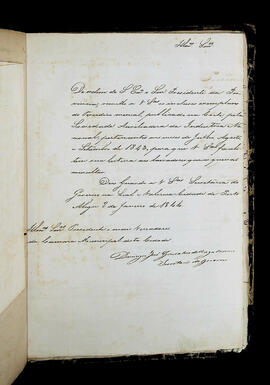 Illmo Snr.
De ordem de S. Exa. o Snr. Presidente da Pro
vincia, remetto a V. Sas. os inclusos exemplares
do periodico mensal publicado na Corte, pela
Sociedade Auxiliadora da Industria Na
cional, pertencentes aos mezes de Julho, Agosto
e Setembro de 1843, para que V. Sas.
sua leitura aos
Deos Guarde a V. Sas. Secretaria do
Governo na Leal e Valerosa Cidade de Porto
Alegre 2 de Janeiro de 1844
Illmos. Snrs. Presidente e mais Vereadores
da Camara Municipal desta Cidade
Domingos José Gonçalves de Magalhaens
Secretario do Governo